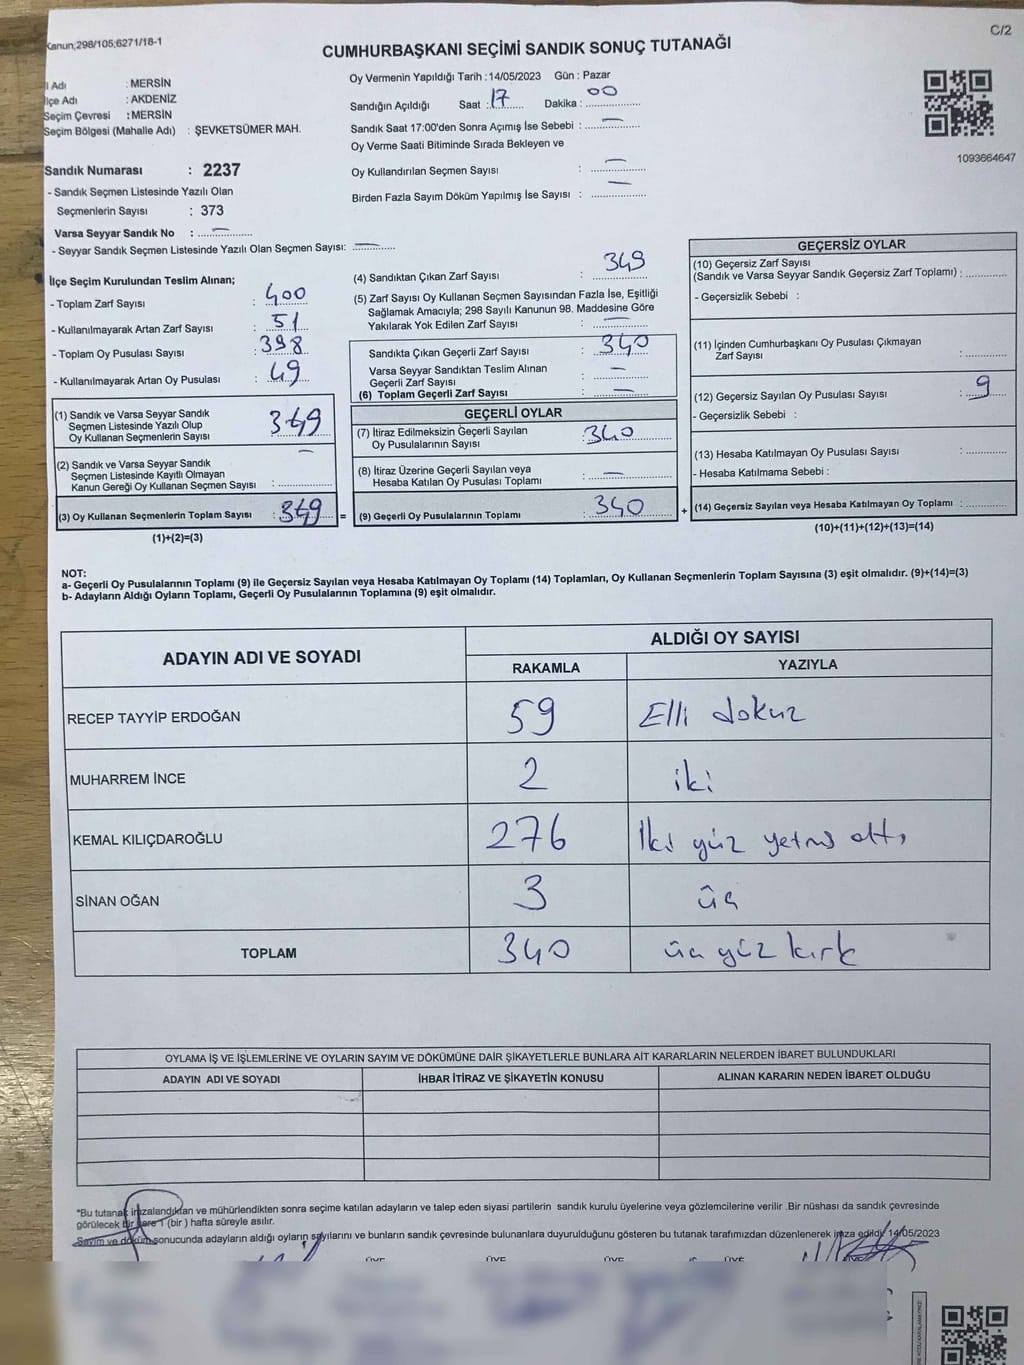 Kanun;298/105;6271/18-1
C/2
CUMHURBAŞKANI SEÇİMİ SANDIK SONUÇ TUTANAĞI
İl Adı : MERSİN
İlçe Adı : AKDENİZ
Seçim Çevresi : MERSİN
Seçim Bölgesi (Mahalle Adı) : ŞEVKETSÜMER MAH.
Sandık Numarası : 2237
- Sandık Seçmen Listesinde Yazılı Olan
Seçmenlerin Sayısı : 373
Varsa Seyyar Sandık No : —
- Seyyar Sandık Seçmen Listesinde Yazılı Olan Seçmen Sayısı: —
Oy Vermenin Yapıldığı Tarih : 14/05/2023 Gün : Pazar
Sandığın Açıldığı Saat : 17 Dakika : 00
Sandık Saat 17:00'den Sonra Açımış İse Sebebi : —
Oy Verme Saati Bitiminde Sırada Bekleyen ve
Oy Kullandırılan Seçmen Sayısı : —
Birden Fazla Sayım Döküm Yapılmış İse Sayısı : —
1093664647
İlçe Seçim Kurulundan Teslim Alınan;
- Toplam Zarf Sayısı : 400
- Kullanılmayarak Artan Zarf Sayısı : 51
- Toplam Oy Pusulası Sayısı : 398
- Kullanılmayarak Artan Oy Pusulası : 49
(1) Sandık ve Varsa Seyyar Sandık
Seçmen Listesinde Yazılı Olup
Oy Kullanan Seçmenlerin Sayısı 349
(2) Sandık ve Varsa Seyyar Sandık
Seçmen Listesinde Kayıtlı Olmayan
Kanun Gereği Oy Kullanan Seçmen Sayısı : —
(3) Oy Kullanan Seçmenlerin Toplam Sayısı : 349 =
(1)+(2)=(3)
(4) Sandıktan Çıkan Zarf Sayısı : 349
(5) Zarf Sayısı Oy Kullanan Seçmen Sayısından Fazla İse, Eşitliği
Sağlamak Amacıyla; 298 Sayılı Kanunun 98. Maddesine Göre
Yakılarak Yok Edilen Zarf Sayısı : —
Sandıkta Çıkan Geçerli Zarf Sayısı : 340
Varsa Seyyar Sandıktan Teslim Alınan
Geçerli Zarf Sayısı : —
(6) Toplam Geçerli Zarf Sayısı : —
GEÇERLİ OYLAR
(7) İtiraz Edilmeksizin Geçerli Sayılan
Oy Pusulalarının Sayısı : 340
(8) İtiraz Üzerine Geçerli Sayılan veya
Hesaba Katılan Oy Pusulası Toplamı : —
(9) Geçerli Oy Pusulalarının Toplamı : 340 +
GEÇERSİZ OYLAR
(10) Geçersiz Zarf Sayısı
(Sandık ve Varsa Seyyar Sandık Geçersiz Zarf Toplamı) :
- Geçersizlik Sebebi :
(11) İçinden Cumhurbaşkanı Oy Pusulası Çıkmayan
Zarf Sayısı :
(12) Geçersiz Sayılan Oy Pusulası Sayısı : 9
- Geçersizlik Sebebi :
(13) Hesaba Katılmayan Oy Pusulası Sayısı :
- Hesaba Katılmama Sebebi :
(14) Geçersiz Sayılan veya Hesaba Katılmayan Oy Toplamı :
(10)+(11)+(12)+(13)=(14)
NOT:
a- Geçerli Oy Pusulalarının Toplamı (9) ile Geçersiz Sayılan veya Hesaba Katılmayan Oy Toplamı (14) Toplamları, Oy Kullanan Seçmenlerin Toplam Sayısına (3) eşit olmalıdır. (9)+(14)=(3)
b- Adayların Aldığı Oyların Toplamı, Geçerli Oy Pusulalarının Toplamına (9) eşit olmalıdır.
ADAYIN ADI VE SOYADI
ALDIĞI OY SAYISI
RAKAMLA YAZIYLA
RECEP TAYYİP ERDOĞAN 59 Elli dokuz
MUHARREM İNCE 2 iki
KEMAL KILIÇDAROĞLU 276 İki yüz yetmiş altı
SİNAN OĞAN 3 üç
TOPLAM 340 üç yüz kırk
OYLAMA İŞ VE İŞLEMLERİNE VE OYLARIN SAYIM VE DÖKÜMÜNE DAİR ŞİKAYETLERLE BUNLARA AİT KARARLARIN NELERDEN İBARET BULUNDUKLARI
ADAYIN ADI VE SOYADI İHBAR İTİRAZ VE ŞİKAYETİN KONUSU ALINAN KARARIN NEDEN İBARET OLDUĞU
*Bu tutanak imzalandıktan ve mühürlendikten sonra seçime katılan adayların ve talep eden siyasi partilerin sandık kurulu üyelerine veya gözlemcilerine verilir .Bir nüshası da sandık çevresinde
görülecek bir yere 1 (bir ) hafta süreyle asılır.
Sayim ve döküm sonucunda adayların aldığı oyların sayılarını ve bunların sandık çevresinde bulunanlara duyurulduğunu gösteren bu tutanak tarafımızdan düzenlenerek imza edildi. 14/05/2023
ÜYE ÜYE ÜYE ÜYE